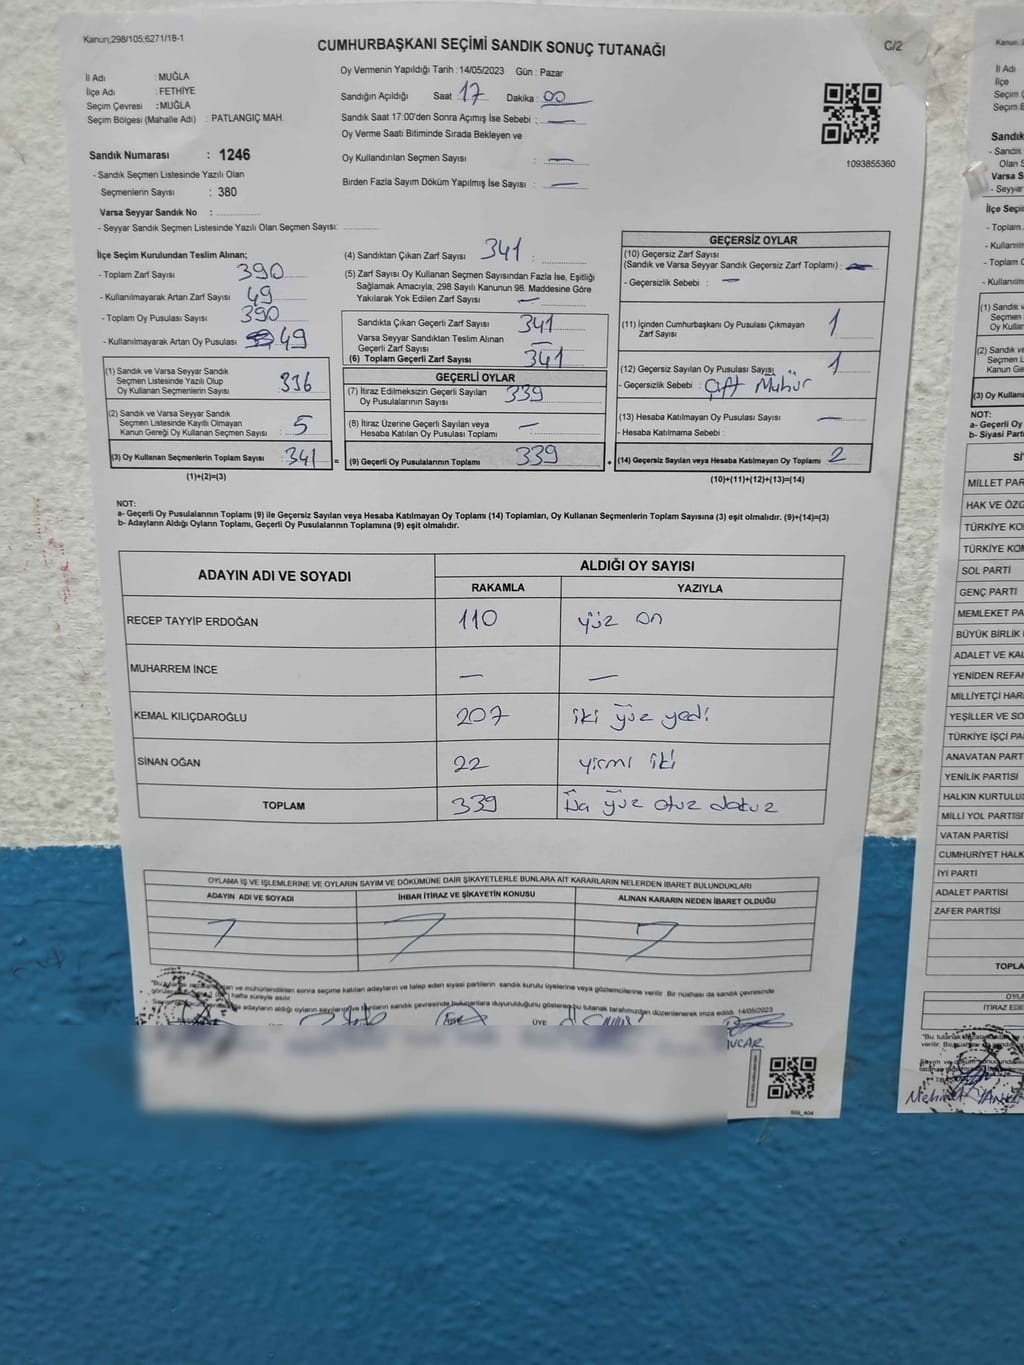 Kanun;298/105;6271/18-1
CUMHURBAŞKANI SEÇİMİ SANDIK SONUÇ TUTANAĞI
C/2
İl Adı : MUĞLA
İlçe Adı : FETHİYE
Seçim Çevresi : MUĞLA
Seçim Bölgesi (Mahalle Adı) : PATLANGIÇ MAH.
Sandık Numarası : 1246
- Sandık Seçmen Listesinde Yazılı Olan
Seçmenlerin Sayısı : 380
Varsa Seyyar Sandık No :
- Seyyar Sandık Seçmen Listesinde Yazılı Olan Seçmen Sayısı:
Oy Vermenin Yapıldığı Tarih : 14/05/2023 Gün : Pazar
Sandığın Açıldığı Saat 17 Dakika : 00
Sandık Saat 17:00'den Sonra Açımış İse Sebebi : —
Oy Verme Saati Bitiminde Sırada Bekleyen ve
Oy Kullandırılan Seçmen Sayısı : —
Birden Fazla Sayım Döküm Yapılmış İse Sayısı : —
1093855360
İlçe Seçim Kurulundan Teslim Alınan;
- Toplam Zarf Sayısı : 390
- Kullanılmayarak Artan Zarf Sayısı : 49
- Toplam Oy Pusulası Sayısı : 390
- Kullanılmayarak Artan Oy Pusulası : 49
(1) Sandık ve Varsa Seyyar Sandık
Seçmen Listesinde Yazılı Olup
Oy Kullanan Seçmenlerin Sayısı : 336
(2) Sandık ve Varsa Seyyar Sandık
Seçmen Listesinde Kayıtlı Olmayan
Kanun Gereği Oy Kullanan Seçmen Sayısı : 5
(3) Oy Kullanan Seçmenlerin Toplam Sayısı : 341
(1)+(2)=(3)
(4) Sandıktan Çıkan Zarf Sayısı : 341
(5) Zarf Sayısı Oy Kullanan Seçmen Sayısından Fazla İse, Eşitliği
Sağlamak Amacıyla; 298 Sayılı Kanunun 98. Maddesine Göre
Yakılarak Yok Edilen Zarf Sayısı : —
Sandıkta Çıkan Geçerli Zarf Sayısı 341
Varsa Seyyar Sandıktan Teslim Alınan
Geçerli Zarf Sayısı —
(6) Toplam Geçerli Zarf Sayısı 341
GEÇERLİ OYLAR
(7) İtiraz Edilmeksizin Geçerli Sayılan
Oy Pusulalarının Sayısı 339
(8) İtiraz Üzerine Geçerli Sayılan veya
Hesaba Katılan Oy Pusulası Toplamı —
= (9) Geçerli Oy Pusulalarının Toplamı 339 +
GEÇERSİZ OYLAR
(10) Geçersiz Zarf Sayısı
(Sandık ve Varsa Seyyar Sandık Geçersiz Zarf Toplamı) : —
- Geçersizlik Sebebi : —
(11) İçinden Cumhurbaşkanı Oy Pusulası Çıkmayan
Zarf Sayısı 1
(12) Geçersiz Sayılan Oy Pusulası Sayısı 1
- Geçersizlik Sebebi : Çift Mühür
(13) Hesaba Katılmayan Oy Pusulası Sayısı —
- Hesaba Katılmama Sebebi :
(14) Geçersiz Sayılan veya Hesaba Katılmayan Oy Toplamı 2
(10)+(11)+(12)+(13)=(14)
NOT:
a- Geçerli Oy Pusulalarının Toplamı (9) ile Geçersiz Sayılan veya Hesaba Katılmayan Oy Toplamı (14) Toplamları, Oy Kullanan Seçmenlerin Toplam Sayısına (3) eşit olmalıdır. (9)+(14)=(3)
b- Adayların Aldığı Oyların Toplamı, Geçerli Oy Pusulalarının Toplamına (9) eşit olmalıdır.
ADAYIN ADI VE SOYADI ALDIĞI OY SAYISI
RAKAMLA YAZIYLA
RECEP TAYYİP ERDOĞAN 110 yüz on
MUHARREM İNCE — —
KEMAL KILIÇDAROĞLU 207 iki yüz yedi
SİNAN OĞAN 22 yirmi iki
TOPLAM 339 yüz otuz dokuz
OYLAMA İŞ VE İŞLEMLERİNE VE OYLARIN SAYIM VE DÖKÜMÜNE DAİR ŞİKAYETLERLE BUNLARA AİT KARARLARIN NELERDEN İBARET BULUNDUKLARI
ADAYIN ADI VE SOYADI İHBAR İTİRAZ VE ŞİKAYETİN KONUSU ALINAN KARARIN NEDEN İBARET OLDUĞU
mühürlendikten sonra seçime katılan adayların ve talep eden siyasi partilerin sandık kurulu üyelerine veya gözlemcilerine verilir. Bir nüshası da sandık çevresinde
hafta süreyle asılır.
adayların aldığı oyların sandık çevresinde bulunanlara duyurulduğunu gösteren bu tutanak tarafımızdan düzenlenerek imza edildi. 14/05/2023
ÜYE
UÇAR
Kanun;
İl Adı
İlçe
Seçim
Seçim
Sandık
- Sandık
Olan
Varsa
- Seyyar
İlçe Seçi
- Toplam
- Kullanılm
- Toplam
- Kullanılm
(1) Sandık
Seçmen
Oy Kullan
(2) Sandık ve
Varsa Sey
Kanun Ger
(3) Oy Kullan
NOT:
a- Geçerli Oy
b- Siyasi Parti
MİLLET PAR
HAK VE ÖZG
TÜRKİYE KO
TÜRKİYE KOM
SOL PARTİ
GENÇ PARTİ
MEMLEKET PA
BÜYÜK BİRLİK
ADALET VE KAL
YENİDEN REFA
MİLLİYETÇİ HAR
YEŞİLLER VE SO
TÜRKİYE İŞÇİ PA
ANAVATAN PART
YENİLİK PARTİSİ
HALKIN KURTULUŞ
MİLLİ YOL PARTİSİ
VATAN PARTİSİ
CUMHURİYET HALK
İYİ PARTİ
ADALET PARTİSİ
ZAFER PARTİSİ
TOPLA